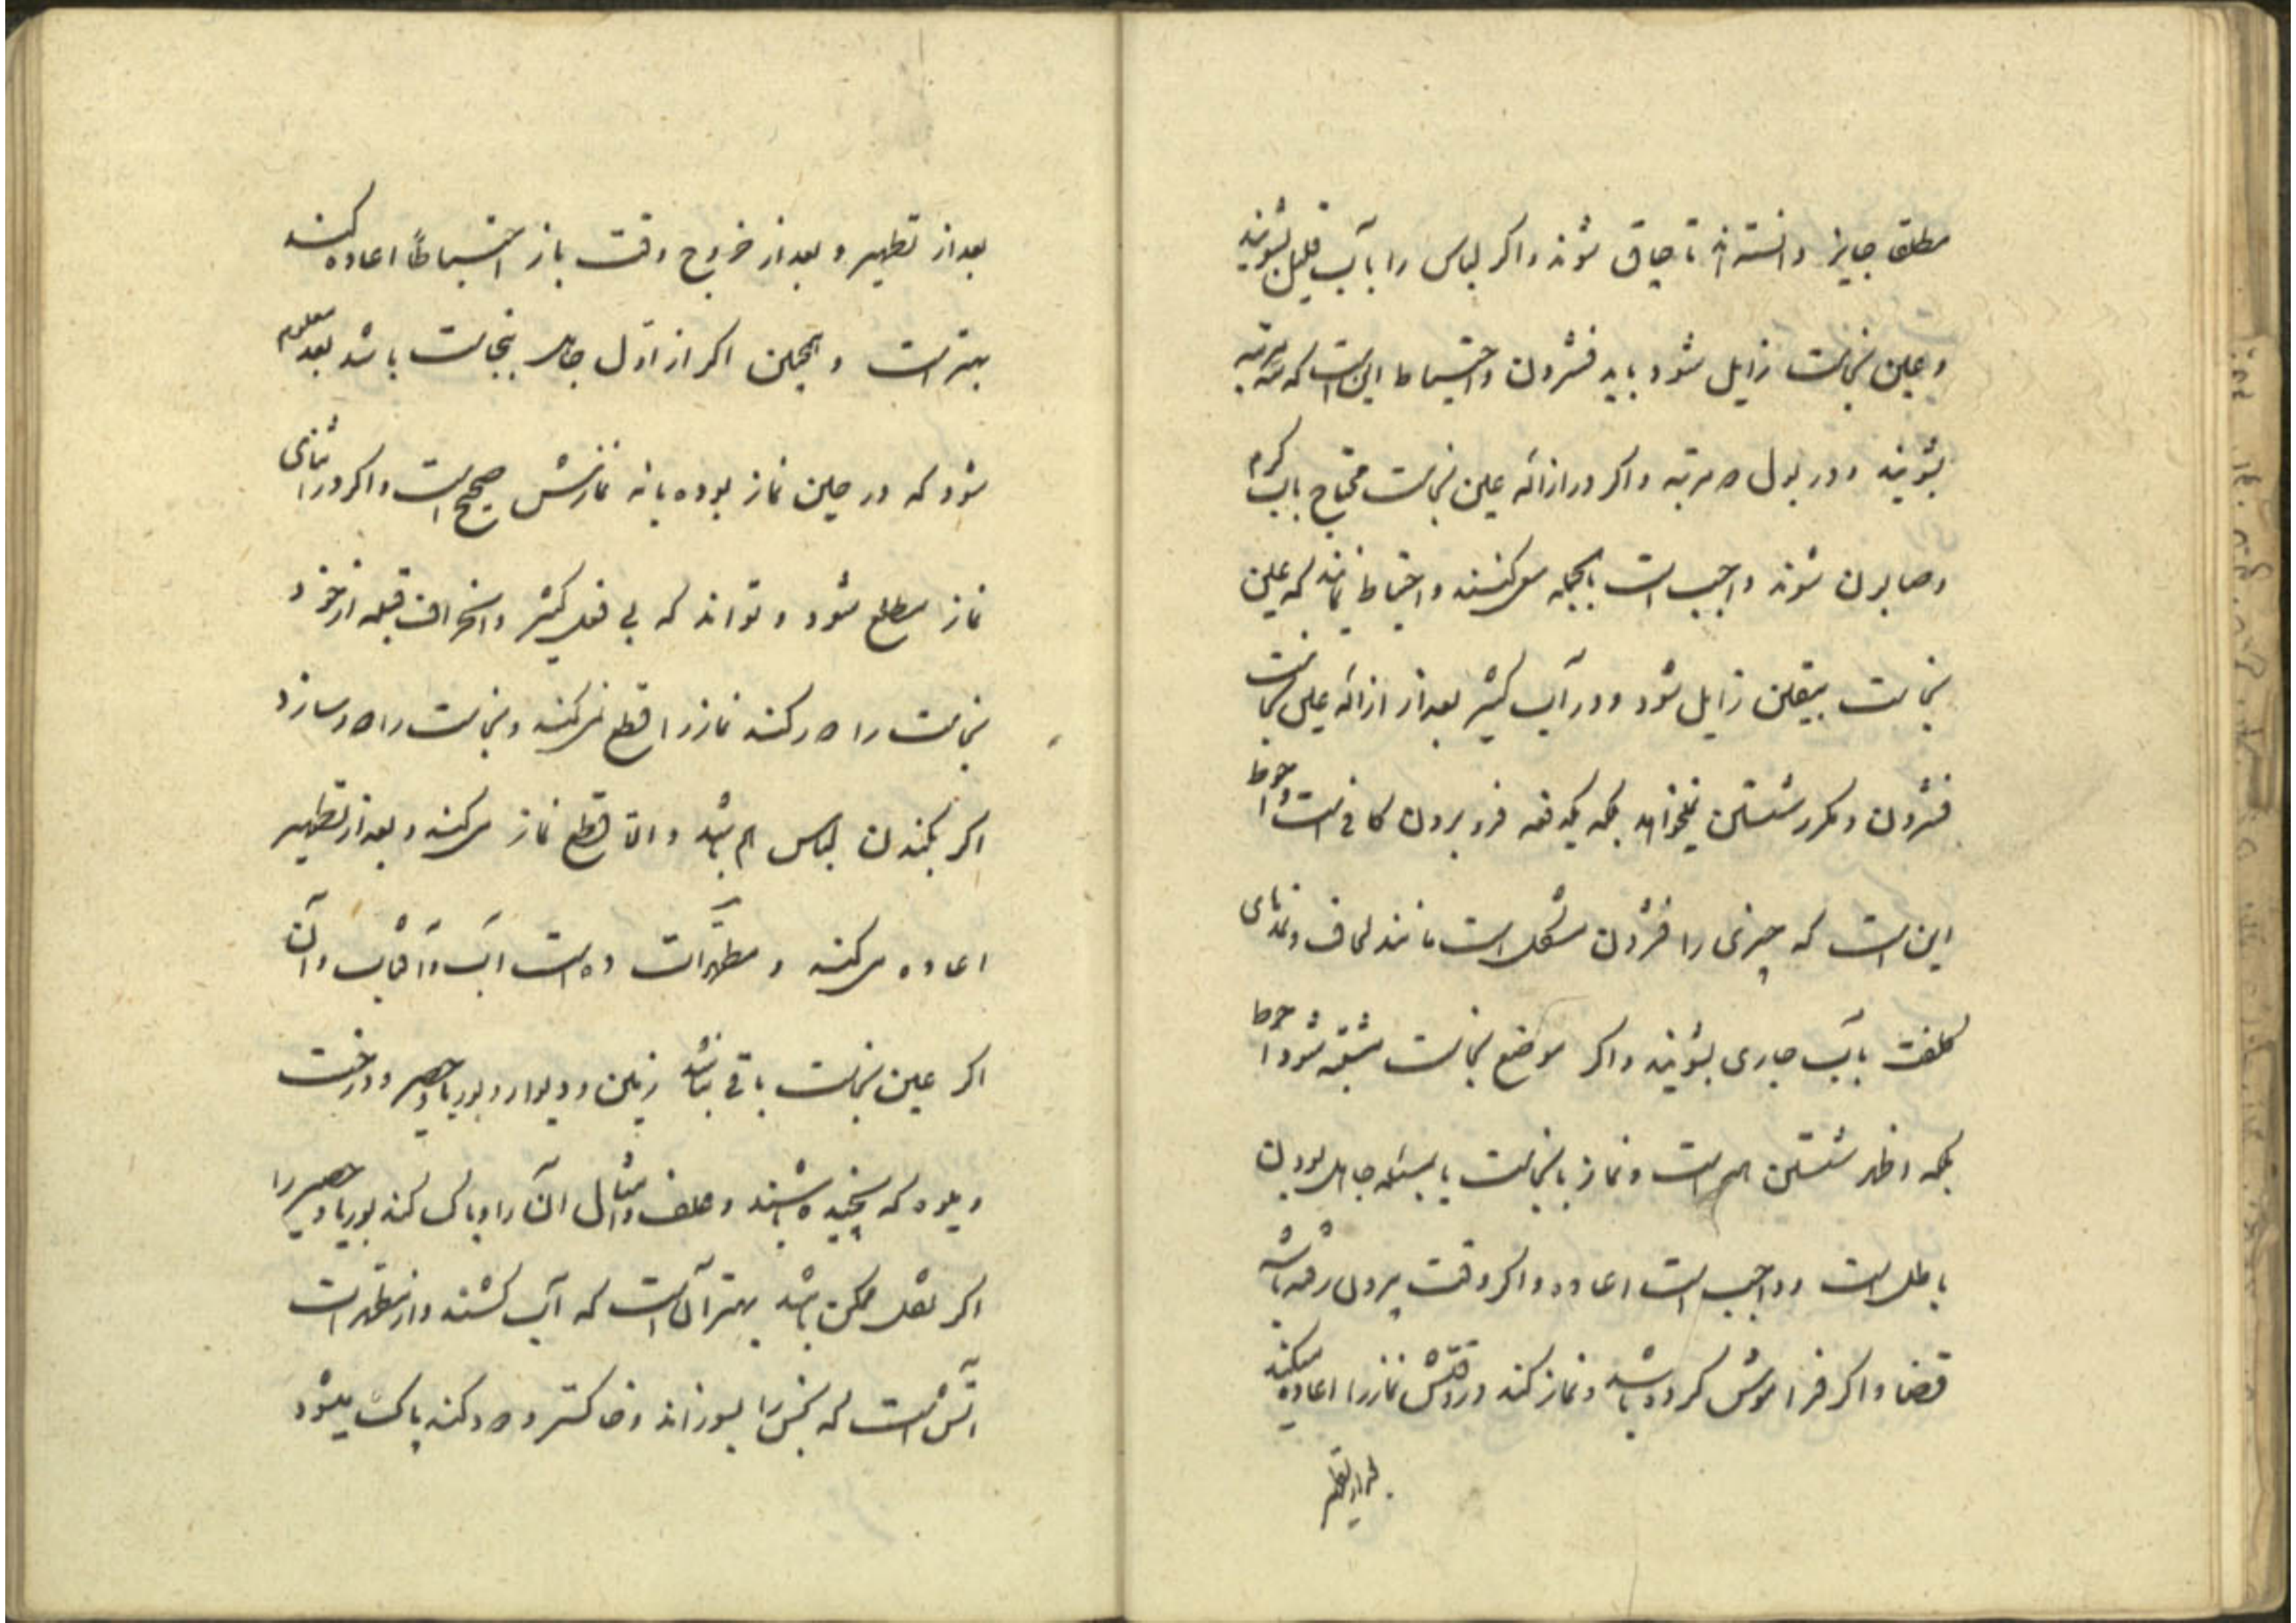 مطلقا جایز دانسته‌اند تا چاق شوند و اگر لباس را بآب قلیل بشویند
و عین نجاست زایل شود باید فشردن و احتیاط این است که سه مرتبه
بشویند و در بول دو مرتبه و اگر در ازاله عین نجاست محتاج بآب گرم
و صابون شوند واجب است بالجمله سعی کنند و احتیاط نمایند که عین
نجاست بیقین زایل شود و در آب کثیر بعد از ازاله عین نجاست
فشردن و مکرر شستن نمیخواهد بلکه یکدفعه فرو بردن کافی است و احوط
این است که چیزی را فشردن مشکل است مانند لحاف و نمدهای
کلفت بآب جاری بشویند و اگر موضع نجاست مشتبه شود احوط
بلکه اظهر شستن همه است و نماز با نجاست یا بمسئله جاهل بودن
باطل است و واجب است اعاده و اگر وقت بیرون رفته باشد
قضا و اگر فراموش کرده باشد و نماز کند در وقتش نماز را اعاده میکند
بعد از تطهیر
بعد از تطهیر و بعد از خروج وقت باز احتیاطاً اعاده کند
بهتر است و همچنین اگر از اول جاهل بنجاست باشد بعد معلوم
شود که در حین نماز بوده یا نه نمازش صحیح است و اگر در اثنای
نماز مطلع شود و تواند که بی فعل کثیر و انحراف قبله از خود
نجاست را دور کند نماز را قطع نمیکند و نجاست را دور سازد
اگر بکندن لباس هم باشد و الّا قطع نماز میکند و بعد از تطهیر
اعاده میکند و مطهّرات ده است آب و آفتاب و آن
اگر عین نجاست باقی نباشد زمین و دیوار و بوریا و حصیر و درخت
و میوه که نچیده باشند و علف و امثال آن را پاک کند بوریا و حصیر را
اگر نقل ممکن باشد بهتر آن است که آب کشند و از مطهرات
آتش است که نجس را بسوزاند و خاکستر و دود کند پاک میشود